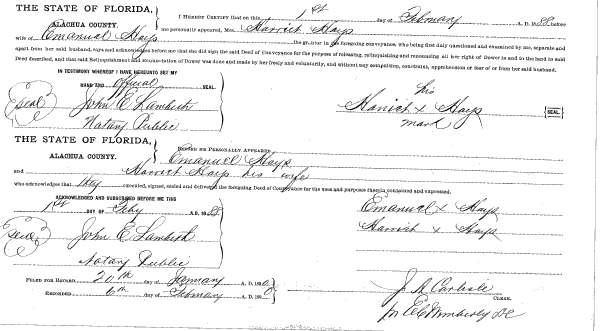 THE STATE OF FLORIDA,
ALACHUA COUNTY.
I HEREBY CERTIFY that on this 1st day of February A. D. 188 before
me personally appeared, Mrs. Harriet Hays
wife of Emanuel Hays the grantor in the foregoing conveyance, who being first duly questioned and examined by me, separate and
apart from her said husband, says and acknowledges before me that she did sign the said Deed of Conveyance for the purpose of releasing, relinquishing and renouncing all her right of Dower in and to the land in said
Deed described, and that said Relinquishment and renunciation of Dower was done and made by her freely and voluntarily, and without any compulsion, constraint, apprehension or fear of or from her said husband.
IN TESTIMONY WHEREOF I HAVE HEREUNTO SET MY
HAND AND Official SEAL.
seal
John E Lambeth
Notary Public
his
Harriet x Hays [SEAL]
mark
THE STATE OF FLORIDA,
ALACHUA COUNTY.
BEFORE ME PERSONALLY APPEARED
Emanuel Hays
and Harriet Hays his wife
who acknowledges that they executed, signed, sealed and delivered the foregoing Deed of Conveyance for the uses and purposes therein contained and expressed.
ACKNOWLEDGED AND SUBSCRIBED BEFORE ME THIS
1st DAY OF Feby A. D. 188
seal
John E Lambeth
Notary Public
Emanuel x Hays
Harriet x Hays
FILED FOR RECORD 20th day of January A. D. 188
RECORDED 6th day of February A. D. 188
J A Carlisle
CLERK.
pr E C Wimberly DC